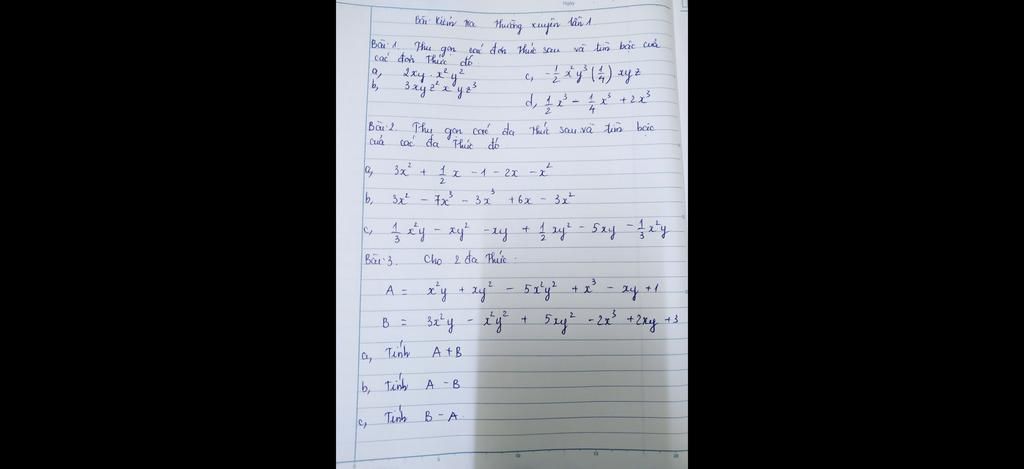 Ngày
Bài Kiểm tra thường xuyên lần 1
Bài 1. Thu gọn các đơn thức sau và tìm bậc của
các đơn thức đó
a, 2xy . x²y²
c, -1/2 x²y³ (1/4) xyz
b, 3xyz² x² yz³
d, 1/2 x³ - 1/4 x³ + 2x³
Bài 2. Thu gọn các đa thức sau và tìm bậc
của các đa thức đó
a, 3x² + 1/2 x - 1 - 2x - x²
b, 3x² - 7x³ - 3x³ + 6x - 3x²
c, 1/3 x²y - xy² - xy + 1/2 xy² - 5xy - 1/3 x²y
Bài 3. Cho 2 đa thức.
A = x²y + xy² - 5x²y² + x³ - xy + 1
B = 3x²y - x²y² + 5xy² - 2x³ + 2xy + 3
a, Tính A + B
b, Tính A - B
c, Tính B - A